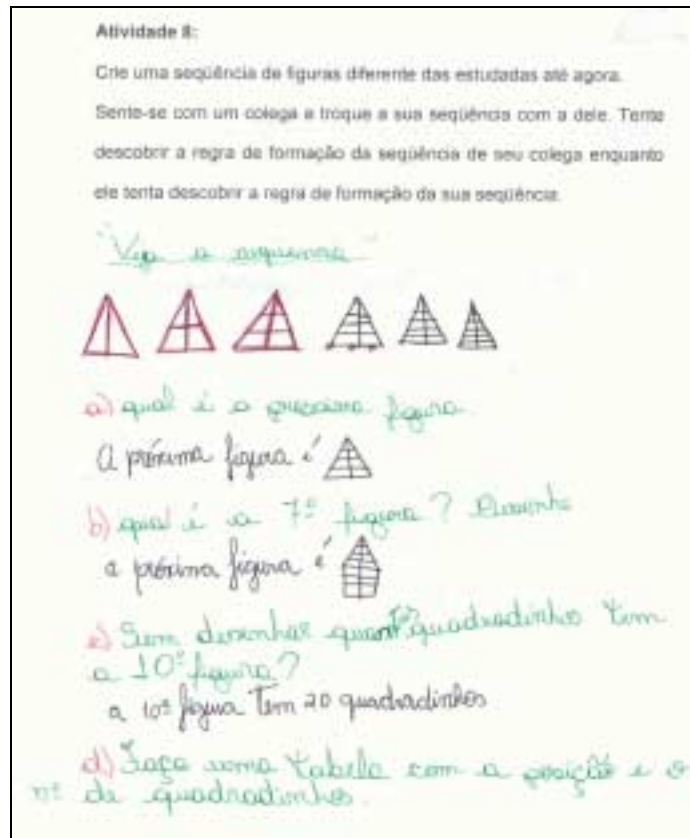 Atividade 8:
Crie uma seqüência de figuras diferente das estudadas até agora.
Sente-se com um colega e troque a sua seqüência com a dele. Tente
descobrir a regra de formação da seqüência de seu colega enquanto
ele tenta descobrir a regra de formação da sua seqüência.
a
a) qual é a figura.
A próxima figura é
b) qual é a 7ª figura?
a próxima figura é
c) Sem desenhar quadradinhos tem
a 10ª figura?
a 10ª figura tem 20 quadradinhos
d) Faça uma tabela com a posição e o
nº de quadradinhos.